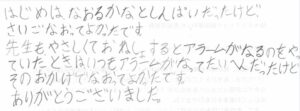 はじめは、なおるかなとしんぱいだったけど、
さいごなおってよかったです
先生もやさしくておねしょするとアラームがなるのをや
っていたときはいつもアラームがなってたいへんだったけど
そのおかげでなおってよかったです。
ありがとうございました。